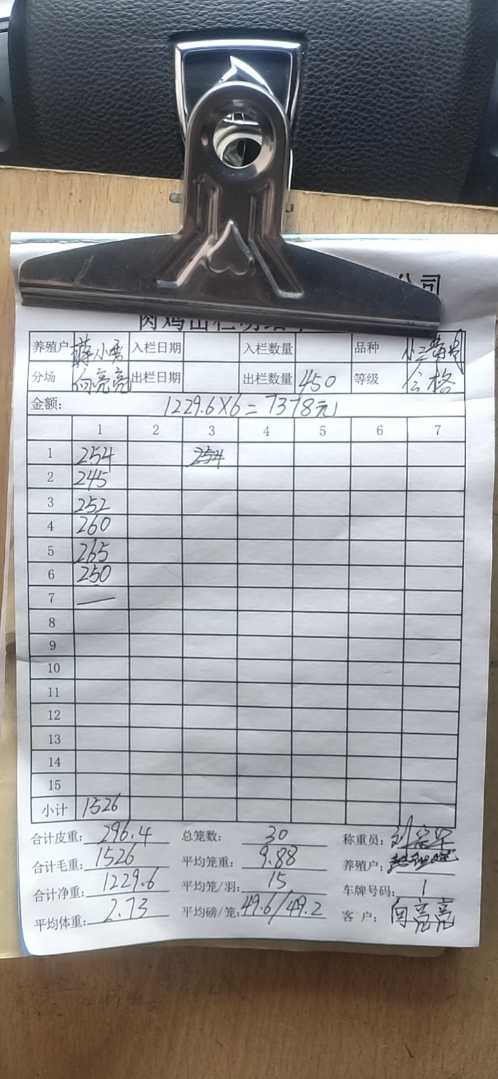 公司
肉鸡出栏
养殖户 蒋小勇 入栏日期 入栏数量 品种
分场 向亮亮 出栏日期 出栏数量 450 等级 合格
金额: 1229.6×6=7378元
1 2 3 4 5 6 7
1 254 254
2 245
3 252
4 260
5 265
6 250
7 —
8
9
10
11
12
13
14
15
小计 1526
合计皮重: 296.4 总笼数: 30 称重员:
合计毛重: 1526 平均笼重: 9.88 养殖户:
合计净重: 1229.6 平均笼/羽: 15 车牌号码: 1
平均体重: 2.73 平均磅/笼: 49.6/49.2 客户: 向亮亮